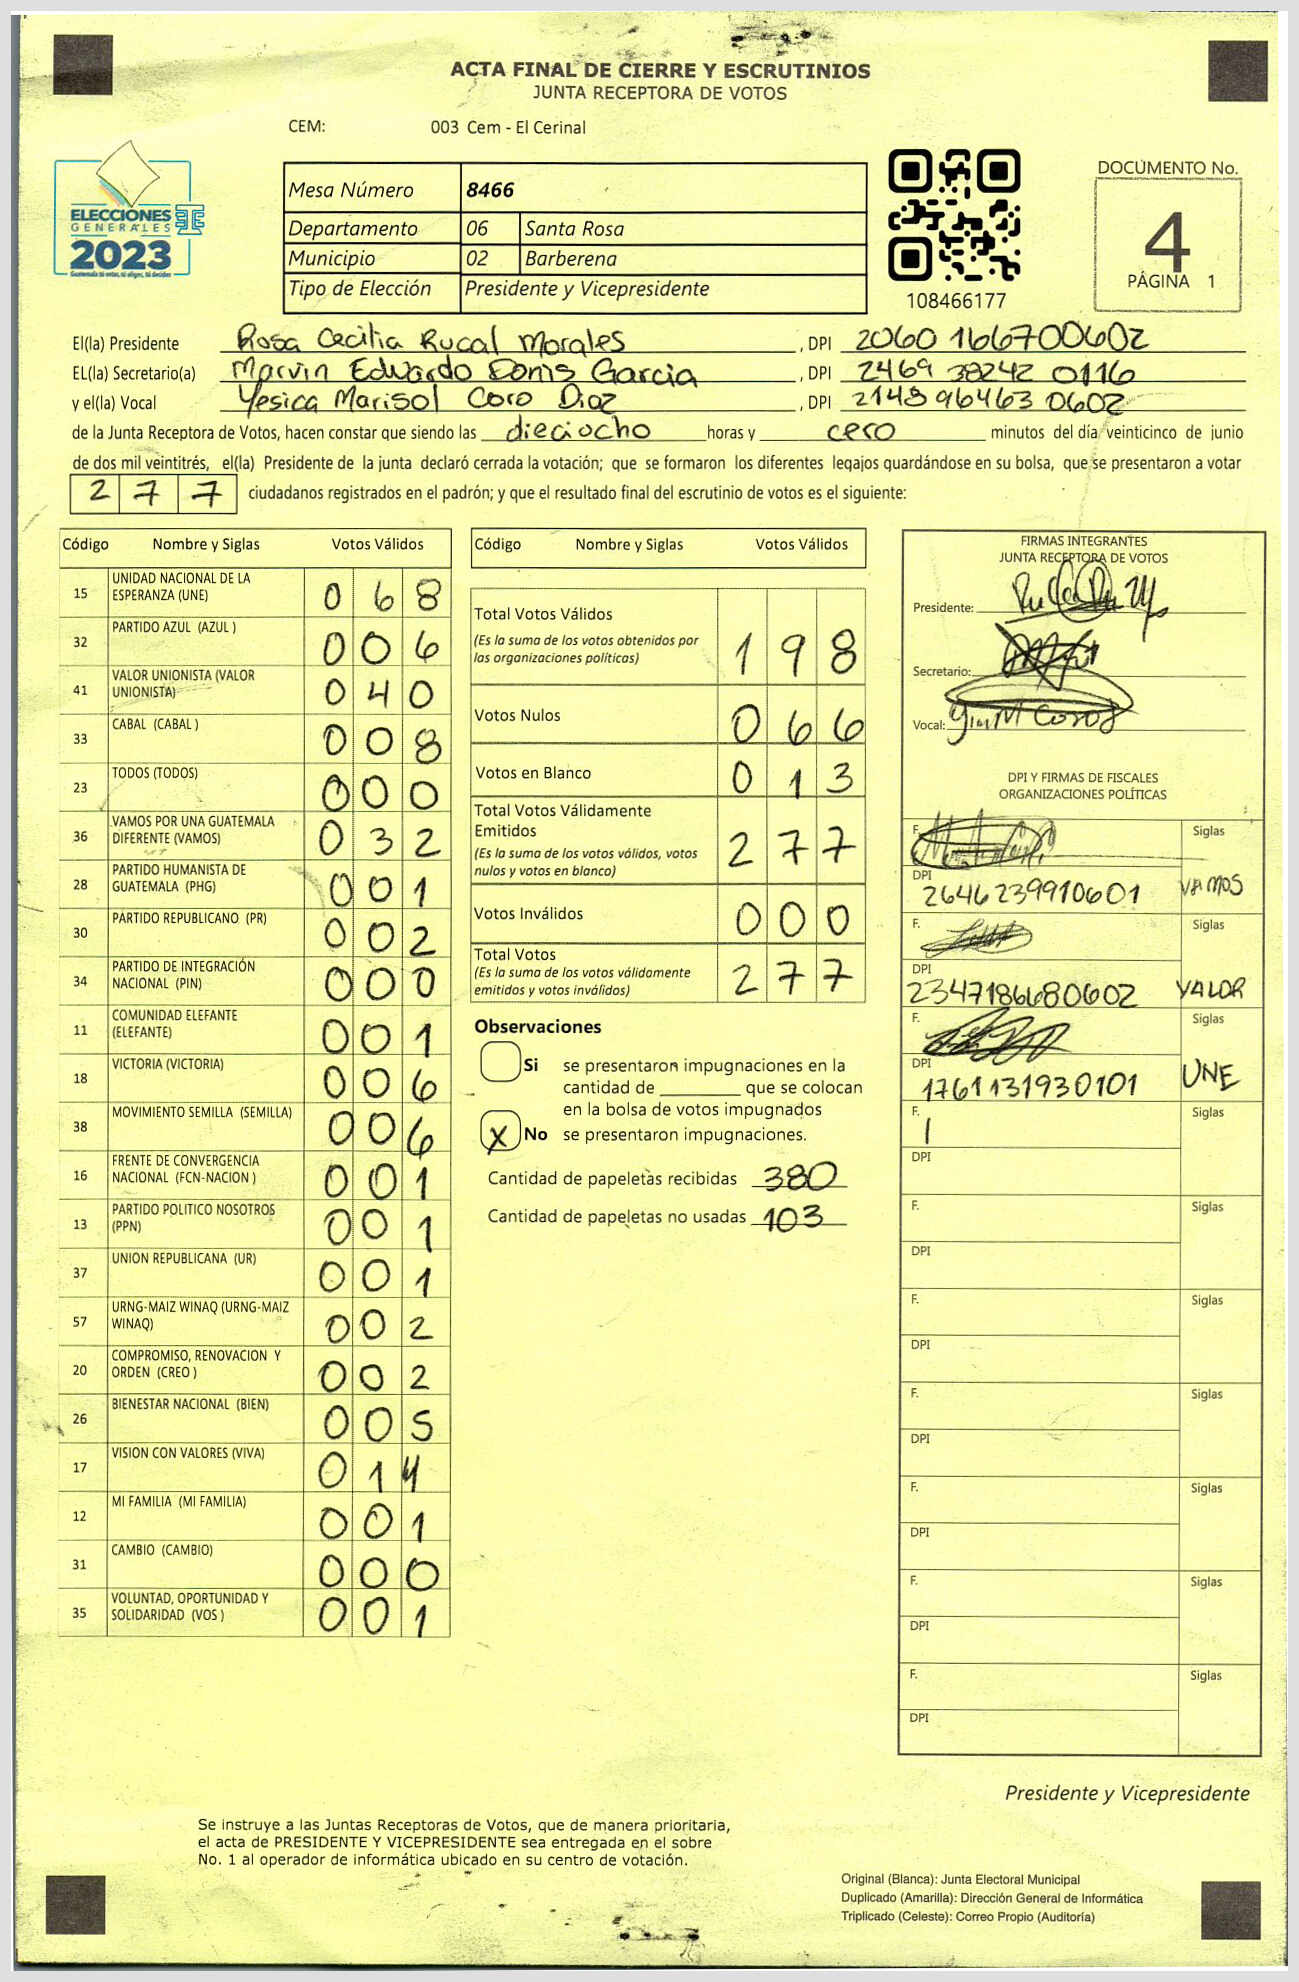 ACTA FINAL DE CIERRE Y ESCRUTINIOS
JUNTA RECEPTORA DE VOTOS
CEM: 003 Cem - El Cerinal
ELECCIONES
GENERALES
2023
Guatemala tú votas, tú eliges, tú decides
Mesa Número 8466
Departamento 06 Santa Rosa
Municipio 02 Barberena
Tipo de Elección Presidente y Vicepresidente
108466177
DOCUMENTO No.
4
PÁGINA 1
El(la) Presidente Rosa Cecilia Rucal Morales , DPI 2060 166700602
EL(la) Secretario(a) Marvin Eduardo Donis Garcia , DPI 2469 38242 0116
y el(la) Vocal Yesica Marisol Coro Diaz , DPI 2148 96463 0602
de la Junta Receptora de Votos, hacen constar que siendo las dieciocho horas y cero minutos del día veinticinco de junio
de dos mil veintitrés, el(la) Presidente de la junta declaró cerrada la votación; que se formaron los diferentes legajos guardándose en su bolsa, que se presentaron a votar
2 7 7 ciudadanos registrados en el padrón; y que el resultado final del escrutinio de votos es el siguiente:
Código Nombre y Siglas Votos Válidos
15 UNIDAD NACIONAL DE LA
ESPERANZA (UNE) 0 6 8
32 PARTIDO AZUL (AZUL ) 0 0 6
41 VALOR UNIONISTA (VALOR
UNIONISTA) 0 4 0
33 CABAL (CABAL ) 0 0 8
23 TODOS (TODOS) 0 0 0
36 VAMOS POR UNA GUATEMALA
DIFERENTE (VAMOS) 0 3 2
28 PARTIDO HUMANISTA DE
GUATEMALA (PHG) 0 0 1
30 PARTIDO REPUBLICANO (PR) 0 0 2
34 PARTIDO DE INTEGRACIÓN
NACIONAL (PIN) 0 0 0
11 COMUNIDAD ELEFANTE
(ELEFANTE) 0 0 1
18 VICTORIA (VICTORIA) 0 0 6
38 MOVIMIENTO SEMILLA (SEMILLA) 0 0 6
16 FRENTE DE CONVERGENCIA
NACIONAL (FCN-NACION ) 0 0 1
13 PARTIDO POLITICO NOSOTROS
(PPN) 0 0 1
37 UNION REPUBLICANA (UR) 0 0 1
57 URNG-MAIZ WINAQ (URNG-MAIZ
WINAQ) 0 0 2
20 COMPROMISO, RENOVACION Y
ORDEN (CREO ) 0 0 2
26 BIENESTAR NACIONAL (BIEN) 0 0 5
17 VISION CON VALORES (VIVA) 0 1 4
12 MI FAMILIA (MI FAMILIA) 0 0 1
31 CAMBIO (CAMBIO) 0 0 0
35 VOLUNTAD, OPORTUNIDAD Y
SOLIDARIDAD (VOS ) 0 0 1
Código Nombre y Siglas Votos Válidos
Total Votos Válidos
(Es la suma de los votos obtenidos por
las organizaciones políticas) 1 9 8
Votos Nulos 0 6 6
Votos en Blanco 0 1 3
Total Votos Válidamente
Emitidos
(Es la suma de los votos válidos, votos
nulos y votos en blanco) 2 7 7
Votos Inválidos 0 0 0
Total Votos
(Es la suma de los votos válidamente
emitidos y votos inválidos) 2 7 7
Observaciones
Si se presentaron impugnaciones en la
cantidad de ________ que se colocan
en la bolsa de votos impugnados
X No se presentaron impugnaciones.
Cantidad de papeletas recibidas 380
Cantidad de papeletas no usadas 103
FIRMAS INTEGRANTES
JUNTA RECEPTORA DE VOTOS
Presidente:
Secretario:
Vocal:
DPI Y FIRMAS DE FISCALES
ORGANIZACIONES POLÍTICAS
F. Siglas
DPI 2646239910601 VAMOS
F. Siglas
DPI 2347186680602 VALOR
F. Siglas
DPI 1761131930101 UNE
F. Siglas
DPI
F. Siglas
DPI
F. Siglas
DPI
F. Siglas
DPI
F. Siglas
DPI
F. Siglas
DPI
F. Siglas
DPI
Presidente y Vicepresidente
Se instruye a las Juntas Receptoras de Votos, que de manera prioritaria,
el acta de PRESIDENTE Y VICEPRESIDENTE sea entregada en el sobre
No. 1 al operador de informática ubicado en su centro de votación.
Original (Blanca): Junta Electoral Municipal
Duplicado (Amarilla): Dirección General de Informática
Triplicado (Celeste): Correo Propio (Auditoría)